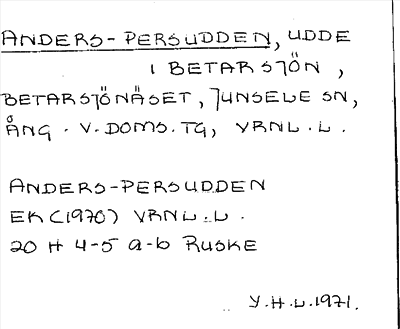 ANDERS-PERSUDDEN, UDDE
I BETARSJÖN,
BETARSJÖNÄSET, JUNSELE SN,
ÅNG. V. DOMS. TG, VRNL.L.
ANDERS-PERSUDDEN
EK (1970) VRNL.L.
20 H 4-5 a-b RUSKE
Y.H.L. 1971.